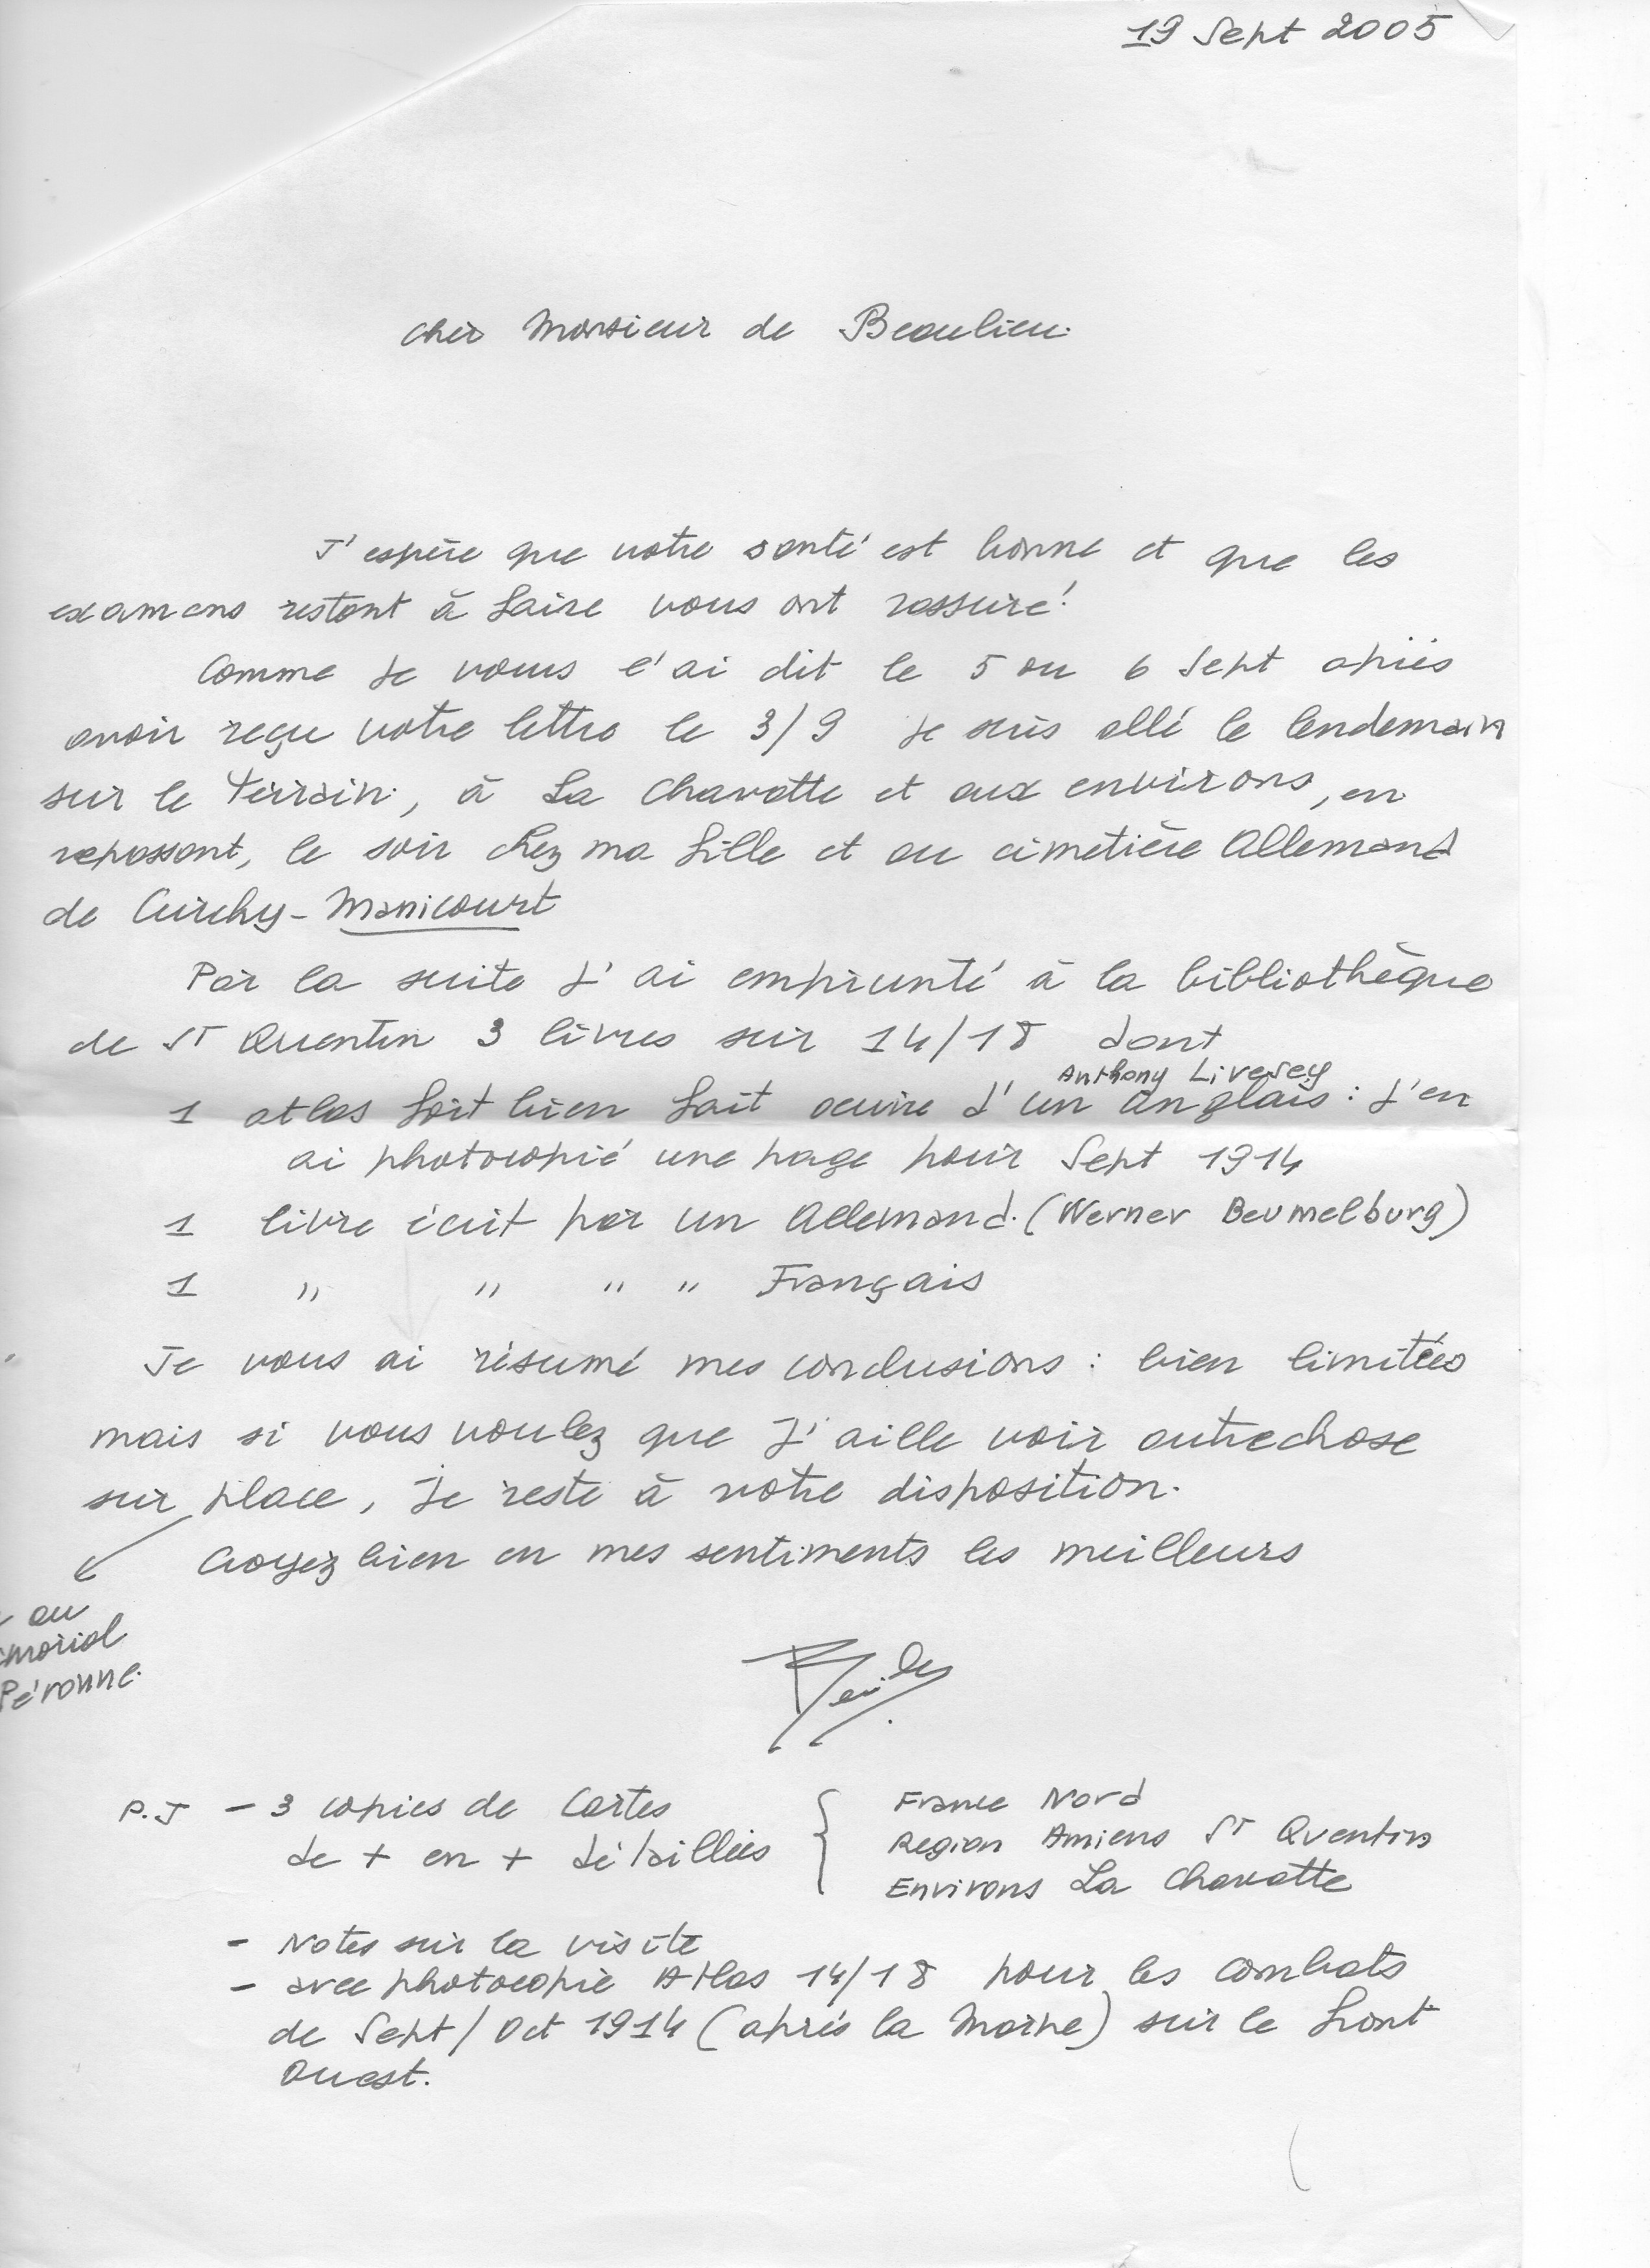 19 Sept 2005
Cher Monsieur de Beaulieu.
J'espère que votre santé est bonne et que les
examens restant à faire vous ont rassuré.
Comme je vous l'ai dit le 5 ou 6 Sept après
avoir reçu votre lettre le 3/9 je suis allé le lendemain
sur le terrain, à La Chavatte et aux environs, en
repassant, le soir chez ma fille et au cimetière Allemand
de Curchy-Manicourt
Par la suite j'ai emprunté à la bibliothèque
de St Quentin 3 livres sur 14/18 dont
Anthony Livesey
1 atlas fort bien fait oeuvre d'un Anglais : j'en
ai photocopié une page pour Sept 1914
1 livre écrit par un Allemand. (Werner Beumelburg)
1 " " " " Français
Je vous ai résumé mes conclusions : bien limitées
mais si vous voulez que j'aille voir autre chose
sur place, je reste à votre disposition.
Croyez bien en mes sentiments les meilleurs
au
Péronne.
P.J - 3 copies de Cartes
de + en + détaillées
France Nord
Region Amiens St Quentin
Environs La Chavatte
- Notes sur la visite
- avec photocopie Atlas 14/18 pour les combats
de Sept/Oct 1914 (après la Marne) sur le front
Ouest.